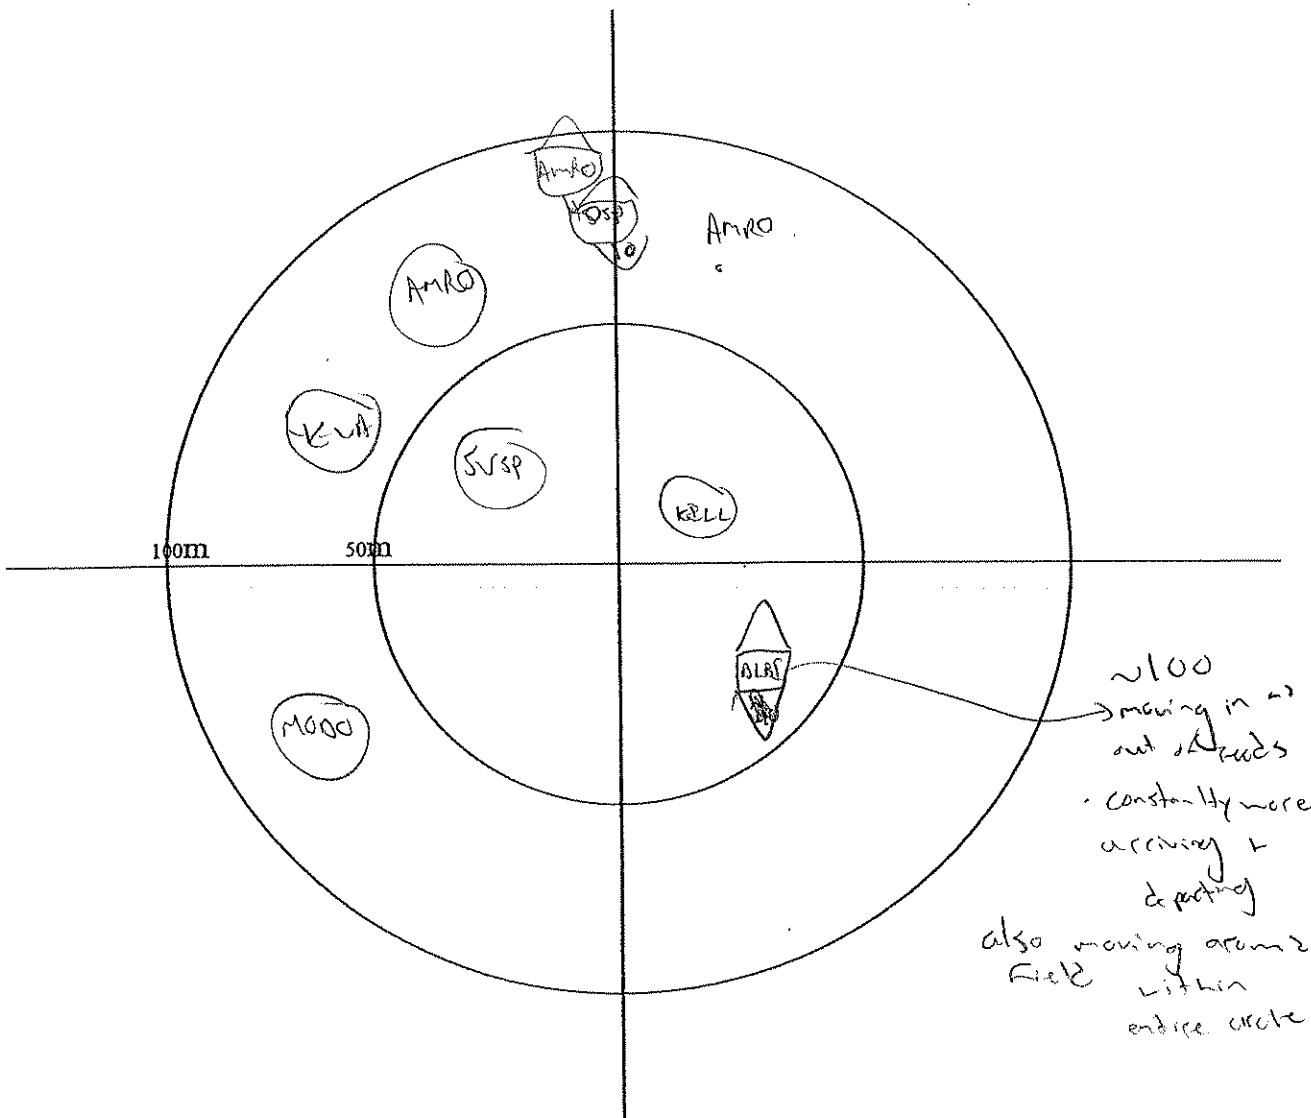 AMRO
HOSP
10
AMRO
AMRO
SVSP
KILL
100m
50m
MODO
~100
moving in
out of reeds
constantly more
arriving +
departing
also moving around
Field within
entire circle